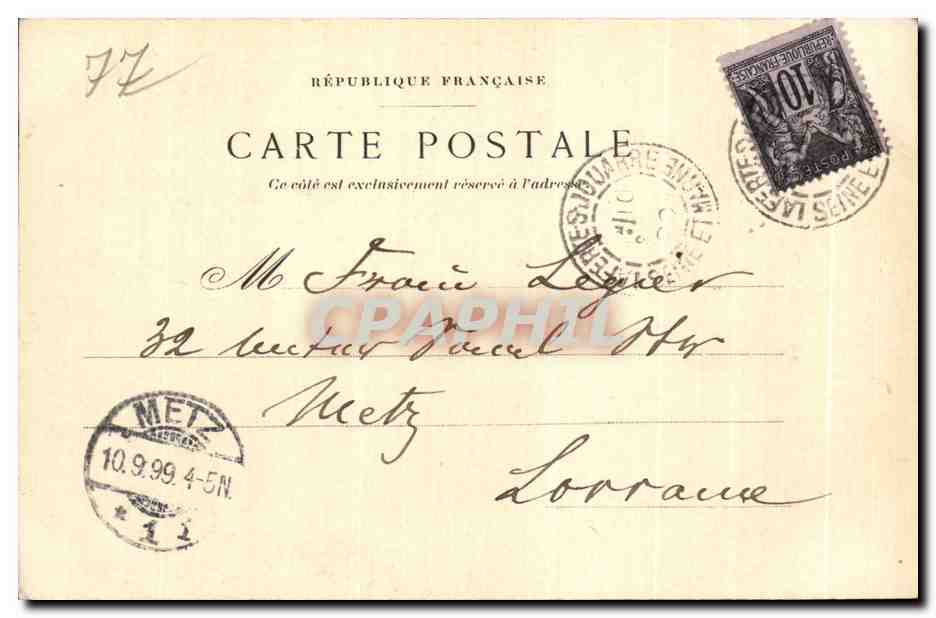 77
RÉPUBLIQUE FRANÇAISE
CARTE POSTALE
Ce côté est exclusivement réservé à l'adresse
RÉPUBLIQUE FRANÇAISE
10
POSTES
LA FERTE-S-JOUARRE
SEINE ET MARNE
LA FERTE-S
SEINE E
M
32
Metz
Lorraine
CPAPHIL
METZ
10.9.99. 4-5N.
* 1 1